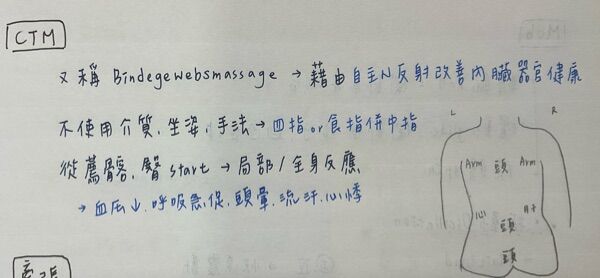 CTM
又稱 Bindegewebsmassage → 藉由自主N反射改善內臟器官健康
不使用介質、坐姿、手法 → 四指 or 食指併中指
從薦骨、臀 start → 局部/全身反應
→ 血压↓、呼吸急促、頭暈、流汗、心悸
L R
Arm 頭 Arm
心 頭 肝
頭